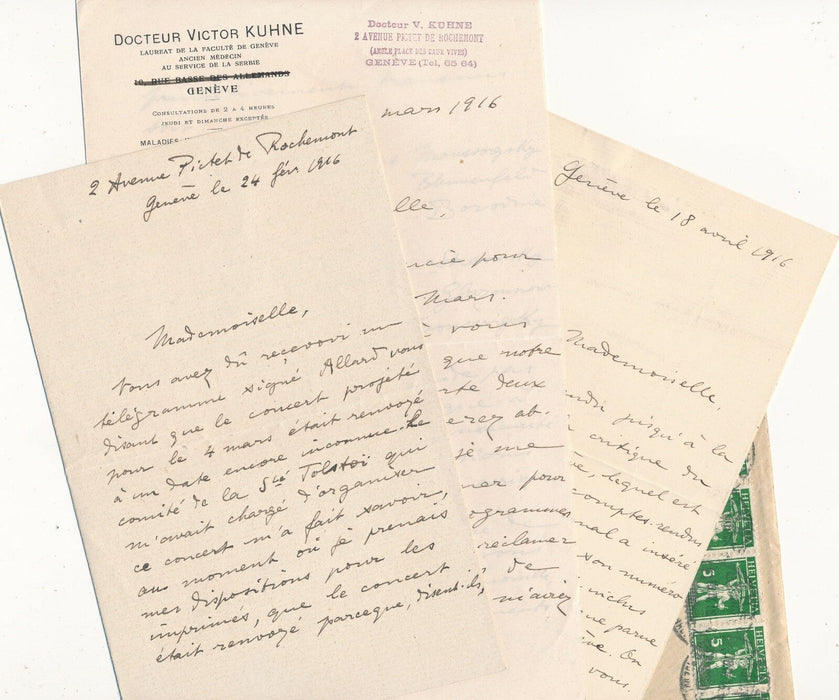 DOCTEUR VICTOR KUHNE
LAURÉAT DE LA FACULTÉ DE GENÈVE
ANCIEN MÉDECIN
AU SERVICE DE LA SERBIE
10, RUE BASSE DES ALLEMANDS
GENÈVE
CONSULTATIONS DE 2 A 4 HEURES
JEUDI ET DIMANCHE EXCEPTÉS
MALADIES
Docteur V. KUHNE
2 AVENUE PICTET DE ROCHEMONT
(ANGLE PLACE DES EAUX VIVES)
GENÈVE (Tel. 65 64)
mars 1916
lle,
rcie pour
Mars.
à vous
que notre
rte deux
erez ab-
je me
ner pour
ogrammes
réclamer
de
n'ayiez
2 Avenue Pictet de Rochemont
Genève le 24 févr 1916
Mademoiselle,
Vous avez dû recevoir un
télégramme signé Allard vous
disant que le concert projeté
pour le 4 mars était renvoyé
à un date encore inconnue. Le
comité de la Sté Tolstoï qui
m'avait chargé d'organiser
ce concert m'a fait savoir,
au moment où je prenais
mes dispositions pour les
imprimés, que le concert
était renvoyé parceque, disent-ils,
Genève le 18 avril 1916
Mademoiselle,
jusqu'à la
critique du
lequel est
comptes-rendus
nal a inséré
son numéro
inclus
ne parue
On
vous
HELVETIA
5
HELVETIA
5
HELVETIA